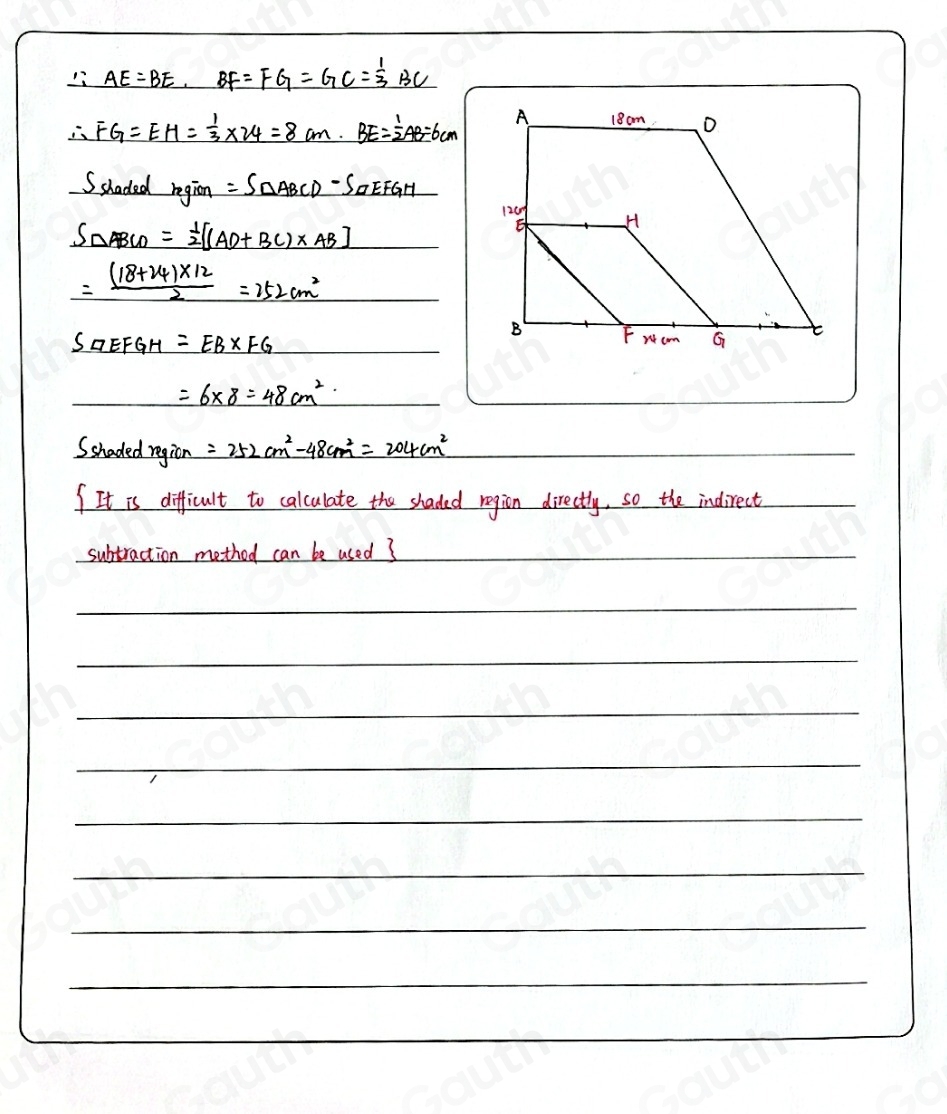 ∵ AE=BE, BF=FG=GC=1/3 BC
∴ FG=EH=1/3×24=8 cm. BE=1/2AB=6cm
S shaded region = S▱ABCD - S▱EFGH
S▱ABCD = 1/2[(AD+BC)×AB]
= (18+24)×12/2 = 252cm²
S▱EFGH = EB×FG
= 6×8=48cm².
S shaded region = 252cm²-48cm²=204cm²
{It is difficult to calculate the shaded region directly, so the indirect
subtraction method can be used}
A 18cm D
12cm
E H
B F 24cm G C
Gauth